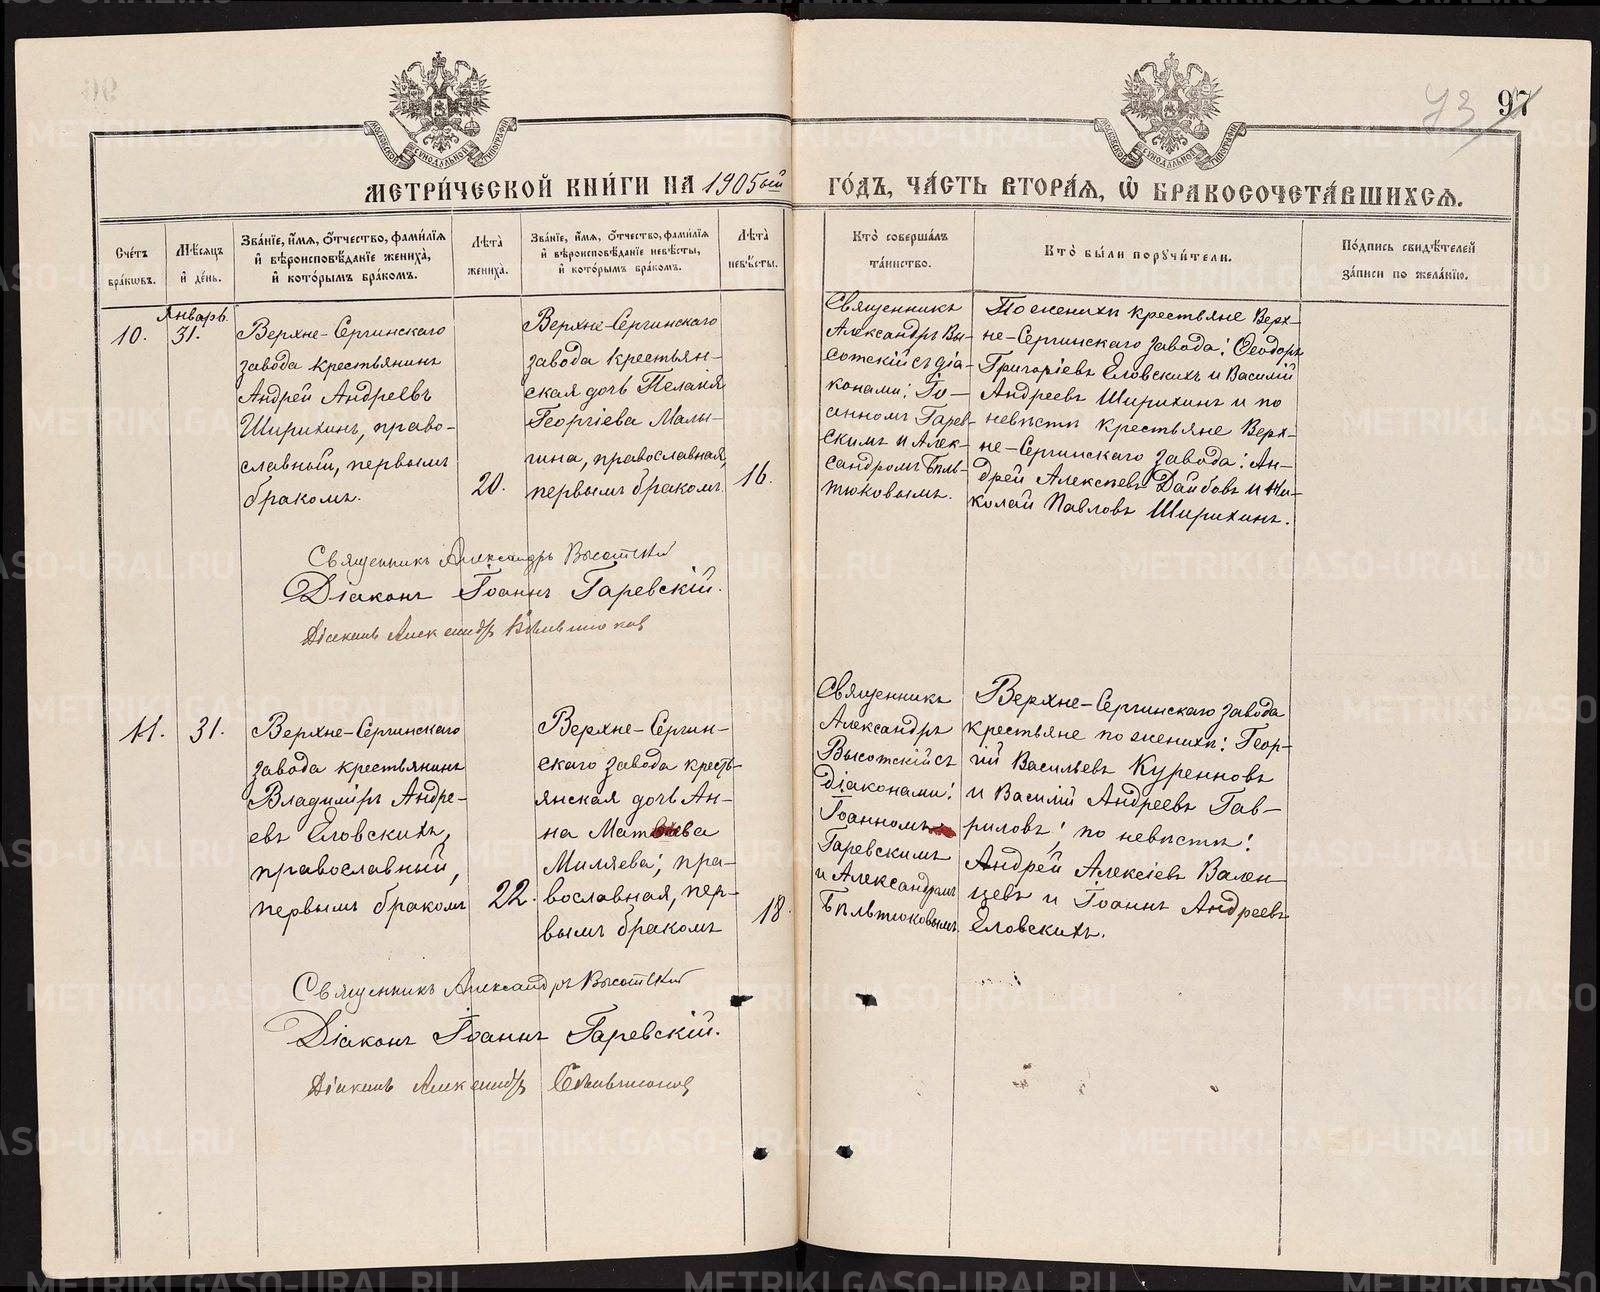 73 97
МЕТРИ́ЧЕСКОЙ КНИ́ГИ НА 1905ый ГО́ДЪ, ЧА́СТЬ ВТОРА́Я, Ѽ БРАКОСОЧЕТА́ВШИХСЯ.
Сче́тъ бра́кωвъ.
Мѣ́сяцъ и де́нь.
Зва́нїе, и́мя, ѻ́тчество, фами́лїя и҆ вѣроисповѣ́данїе жениха̀, и҆ кото́рымъ бра́комъ.
Лѣта̀ жениха̀.
Зва́нїе, и́мя, ѻ́тчество, фами́лїя и҆ вѣроисповѣ́данїе невѣ́сты, и҆ кото́рымъ бра́комъ.
Лѣта̀ невѣ́сты.
Кто̀ соверша́лъ та́инство.
Кто̀ бы́ли поручи́тели.
По́дпись свидѣ́телей за́писи по жела́нїю.
10.
Январь
31.
Верхне-Сергинскаго
завода крестьянинъ
Андрей Андреевъ
Ширихинъ, право-
славный, первымъ
бракомъ.
20.
Верхне-Сергинскаго
завода крестьян-
ская дочь Пелагія
Георгіева Малы-
гина, православная,
первымъ бракомъ
16.
Священникъ
Александръ Вы-
сотскій съ діа-
конами: Іо-
анномъ Гарев-
скимъ и Алек-
сандромъ Бѣль-
тюковымъ.
По женихѣ крестьяне Верх-
не-Сергинскаго завода: Ѳеодоръ
Григоріевъ Еловскихъ и Василій
Андреевъ Ширихинъ и по
невѣстѣ крестьяне Верх-
не-Сергинскаго завода: Ан-
дрей Алексѣевъ Дайбовъ и Ни-
колай Павловъ Ширихинъ.
Священникъ Александръ Высотскій
Діаконъ Іоаннъ Гаревскій.
Діаконъ Александръ Бѣльтюковъ
11.
31.
Верхне-Сергинскаго
завода крестьянинъ
Владиміръ Андре-
евъ Еловскихъ,
православный,
первымъ бракомъ
22.
Верхне-Сергин-
скаго завода кресть-
янская дочь Ан-
на Матвѣева
Миляева; пра-
вославная, пер-
вымъ бракомъ
18.
Священникъ
Александръ
Высотскій съ
діаконами:
Іоанномъ
Гаревскимъ
и Александромъ
Бѣльтюковымъ.
Верхне-Сергинскаго завода
крестьяне по женихѣ: Геор-
гій Васильевъ Куренновъ
и Василій Андреевъ Гав-
риловъ; по невѣстѣ:
Андрей Алексіевъ Вален-
цевъ и Іоаннъ Андреевъ
Еловскихъ.
Священникъ Александръ Высотскій
Діаконъ Іоаннъ Гаревскій.
Діаконъ Александръ Бѣльтюковъ
METRIKI.GASO-URAL.RU